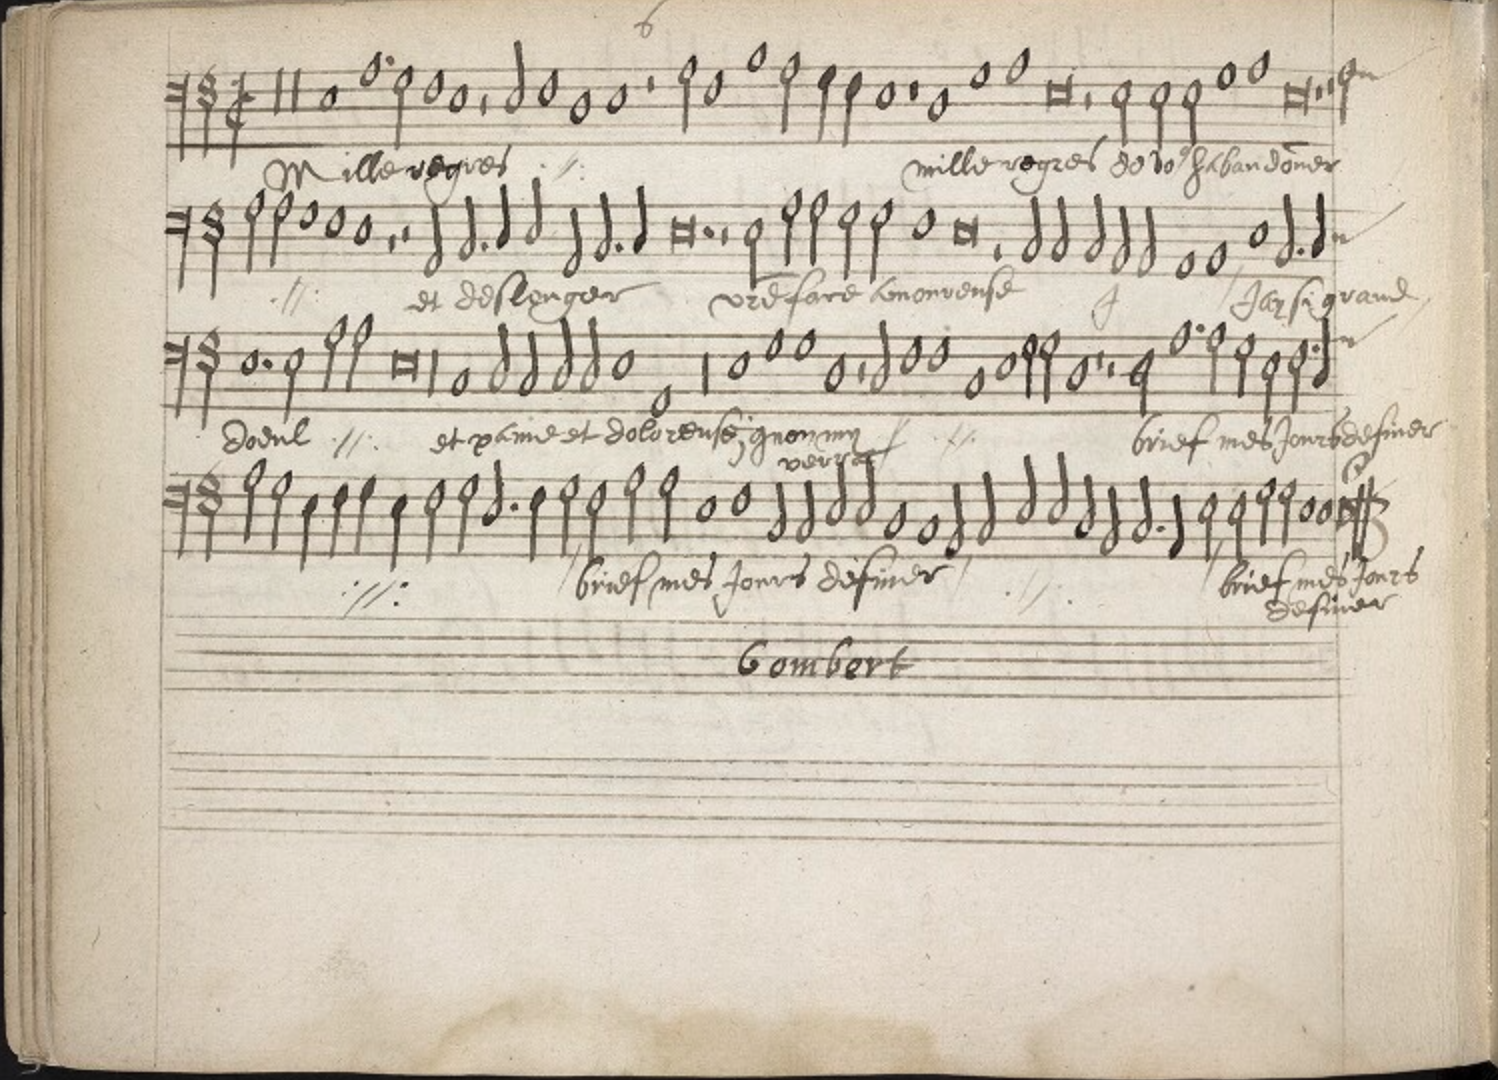 6
Mille regres .//. mille regres de vo9 habandōner
.//. et deslonger vrē face amoureuse J Jay si grand
doeul .//. et paine et doloreuse quon my .//. brief mes Jours definer
verra
.//. brief mes Jours definer .//. brief mes Jours
definer
Gombert